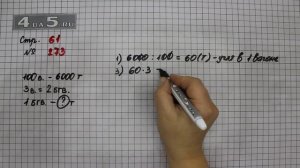 4BA5RU
Стр. 61
№ 273
100в. - 6000 т
3в. = 2 бгв.
1 бгв. - ? т
1) 6000 : 100 = 60 (т) - угля в 1 вагоне
2) 60 · 3